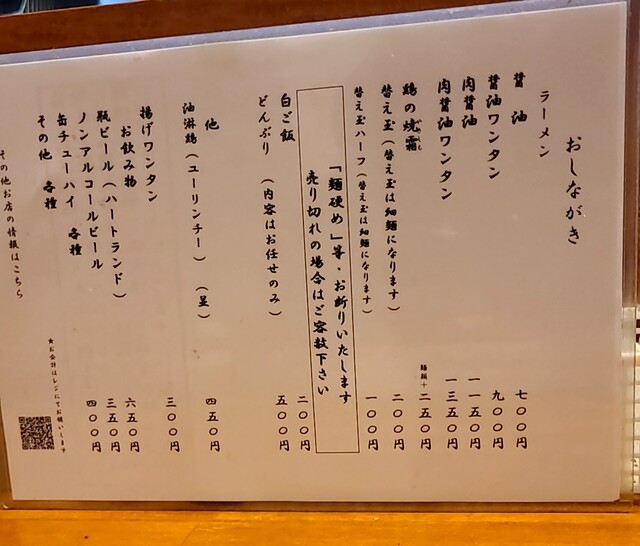 おしながき
ラーメン
醤油 七〇〇円
醤油ワンタン 九〇〇円
肉醤油 一一五〇円
肉醤油ワンタン 一三五〇円
鶏の焼霜 麺類+二五〇円
替え玉(替え玉は細麺になります) 二〇〇円
替え玉ハーフ(替え玉は細麺になります) 一〇〇円
「麺硬め」等・お断りいたします
売り切れの場合はご容赦下さい
白ご飯 二〇〇円
どんぶり (内容はお任せのみ) 五〇〇円
他
油淋鶏(ユーリンチー) (並) 四五〇円
揚げワンタン 三〇〇円
お飲み物
瓶ビール(ハートランド) 六五〇円
ノンアルコールビール 三五〇円
缶チューハイ 各種 四〇〇円
その他 各種
★お会計はレジにてお願いします
その他お店の情報はこちら